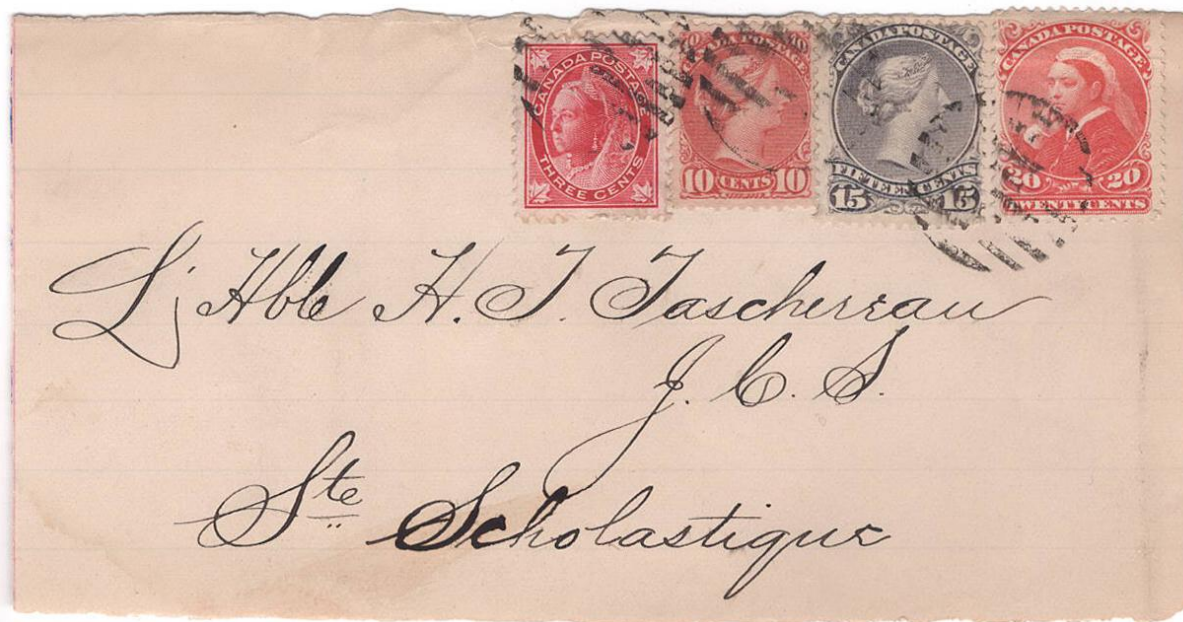 CANADA POSTAGE
THREE CENTS
CANADA POSTAGE
10 CENTS 10
CANADA POSTAGE
15 15
CANADA POSTAGE
20 20
TWENTY CENTS
L'Hble H. T. Taschereau
J. C. S.
Ste Scholastique